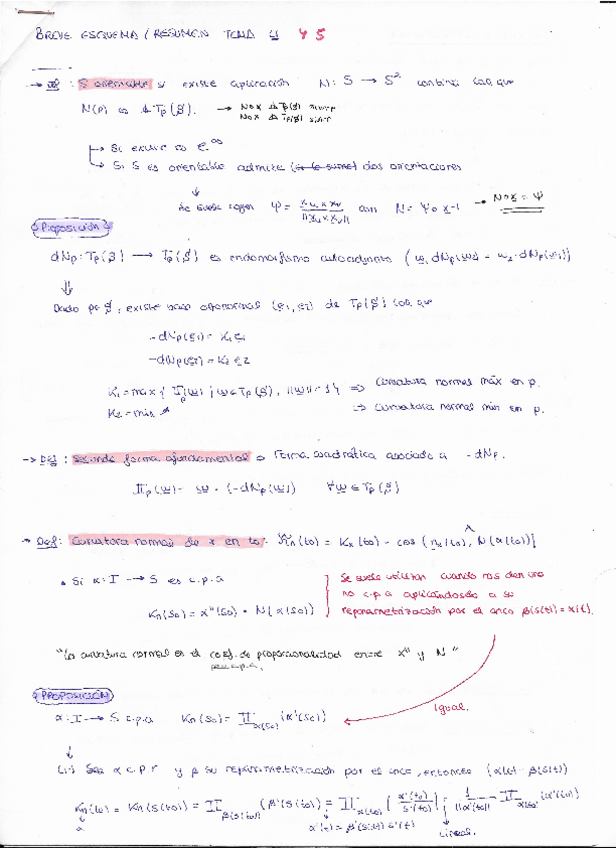 BREVE ESQUEMA / RESUMEN TEMA 4 Y 5
→ Df : S orientable si existe aplicación N: S → S² continua tal que
N(p) es ⊥ Tp(S). → N∘x ⊥ Tp(S) siempre
N∘x ⊥ Tp(S)
→ Si existe es C∞
→ Si S es orientable admite dos orientaciones
↓
Se suele coger Ψ = xu × xv / ||xu × xv|| con N = Ψ∘x⁻¹ → N∘x = Ψ
Proposición
dNp: Tp(S) → Tp(S) es endomorfismo autoadjunto (w₁ dNp(w₂) = w₂ · dNp(w₁))
⇓
Dado p∈S, existe base ortonormal (e₁, e₂) de Tp(S) tal que
-dNp(e₁) = K₁e₁
-dNp(e₂) = K₂e₂
K₁ = max { IIp(w) ; w∈Tp(S), ||w|| = 1 } ⇒ Curvatura normal máx en p.
K₂ = min " ⇒ Curvatura normal min en p.
→ Def : Segunda forma fundamental o Forma cuadrática asociada a -dNp.
IIp(w) = w · (-dNp(w)) ∀w ∈ Tp(S)
→ Def : Curvatura normal de α en t₀. Kn(t₀) = Kα(t₀) · cos (nα(t₀), N(α(t₀)))
• Si α: I → S es c.p.a
Kn(s₀) = α''(s₀) • N(α(s₀))
Se suele utilizar cuando nos den una
no c.p.a aplicándosela a su
reparametrización por el arco β(s(t)) = α(t).
"La curvatura normal es el coef. de proporcionalidad entre α'' y N"
para c.p.a.
PROPOSICIÓN
α: I → S c.p.a Kn(s₀) = II α(s₀) (α'(s₀))
Igual.
↓
Sea α c.p.r y β su reparametrización por el arco, entonces (α(t) = β(s(t))
Kn(t₀) = Kn(s(t₀)) = II β(s(t₀)) (β'(s(t₀))) = II α(t₀) (α'(t₀) / s'(t₀)) = 1 / ||α'(t₀)|| II α(t₀) (α'(t₀))
α'(t) = β'(s(t)) s'(t)
Lineal.